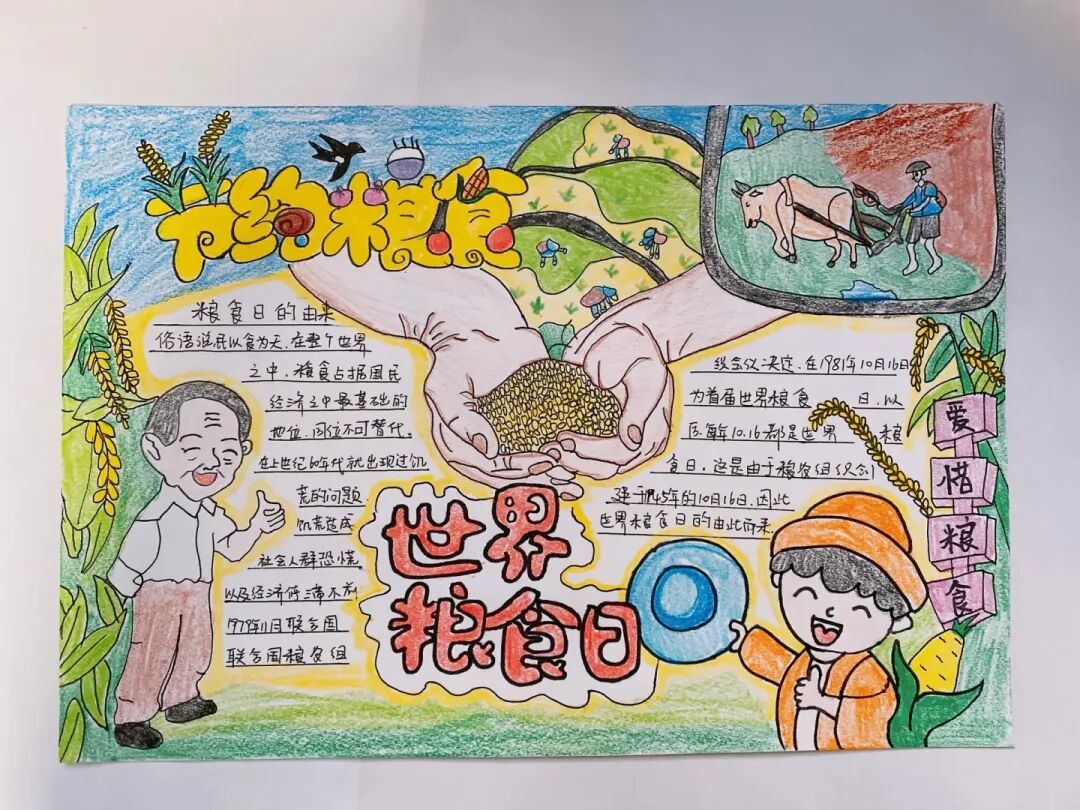 节约粮食
粮食日的由来
俗语说民以食为天,在整个世界
之中,粮食占据国民
经济之中最基础的
地位,同位不可替代。
在上世纪60年代就出现过饥
荒的问题.
饥荒造成
社会人群恐慌,
以及经济停滞不前
1979年11月联合国
联合国粮农组
织会议决定,在1981年10月16日
为首届世界粮食 日,以
后每年10.16都是世界 粮
食日,这是由于粮农组织创
建于1945年的10月16日,因此
世界粮食日的由此而来
世界
粮食日
爱
惜
粮
食